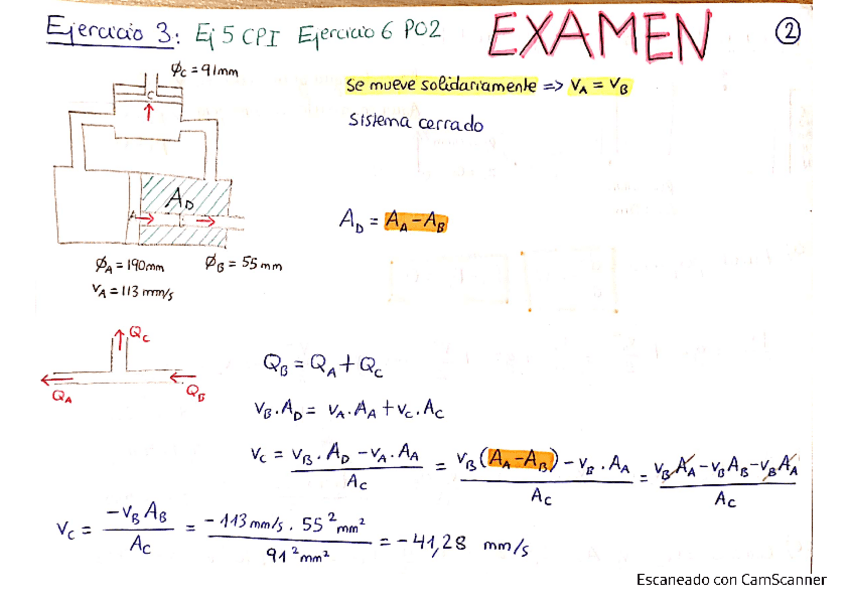 Ejercicio 3: Ej 5 CPI Ejercicio 6 PO2 EXAMEN 2
ϕc = 91mm
Se mueve solidariamente => VA = VB
Sistema cerrado
C
AD
A
AD = AA - AB
ϕA = 190mm ϕB = 55 mm
VA = 113 mm/s
Qc
QA
QB
QB = QA + Qc
VB · AD = VA · AA + Vc · Ac
Vc = (VB · AD - VA · AA) / Ac = (VB (AA - AB) - VB · AA) / Ac = (VB AA - VB AB - VB AA) / Ac
Vc = (-VB AB) / Ac = (-113 mm/s · 55² mm²) / (91² mm²) = -41,28 mm/s
Escaneado con CamScanner